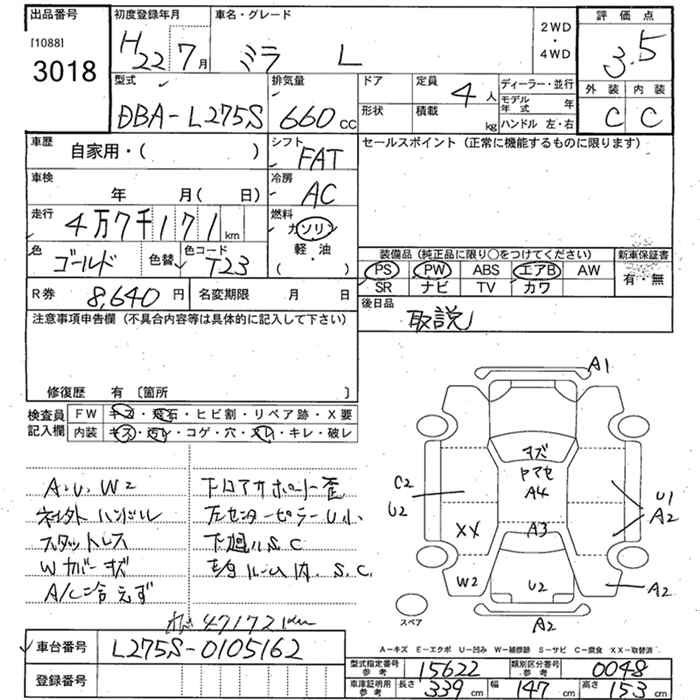 出品番号
[1088]
3018
初度登録年月
H22 7月
車名・グレード
ミラ L
2WD
・
4WD
評価点
3.5
外装 内装
C C
型式
DBA-L275S
排気量
660 CC
ドア
形状
定員
4人
積載
kg
ディーラー・並行
モデル年式 年
ハンドル 左・右
車歴
自家用・( )
シフト
FAT
セールスポイント (正常に機能するものに限ります)
車検
年 月(日)
冷房
AC
走行
4万7千171km
燃料
ガソリン
軽・油
( )
色
ゴールド
色替
色コード
T23
装備品 (純正品に限り○をつけてください)
新車保証書
PS PW ABS エアB AW
SR ナビ TV カワ
有・無
R券 8,640円
名変期限 月 日
後日品
取説
注意事項申告欄 (不具合内容等は具体的に記入して下さい)
修復歴 有〔箇所 〕
検査員
記入欄
FW キズ・飛石・ヒビ割・リペア跡・X要
内装 キズ・汚レ・コゲ・穴・スレ・キレ・破レ
A・U・W2
ハンドル
スタットレス
Wカバーキズ
A/C冷えず
下ロアサポート歪
左センターピラーU小
下廻りS.C
ルーム内.S.C.
47172km
A1
キズ
ヤマセ
A4
C2
U2
U1
A2
XX
A3
W2
U2
A2
スペア
A2
A-キズ E-エクボ U-凹み W-補修跡 S-サビ C-腐食 XX-取替済
車台番号
L275S-0105162
登録番号
型式指定番号
参考
15622
類別区分番号
参考
0048
車庫証明用
参考
長さ 339cm
幅 147cm
高さ 153cm